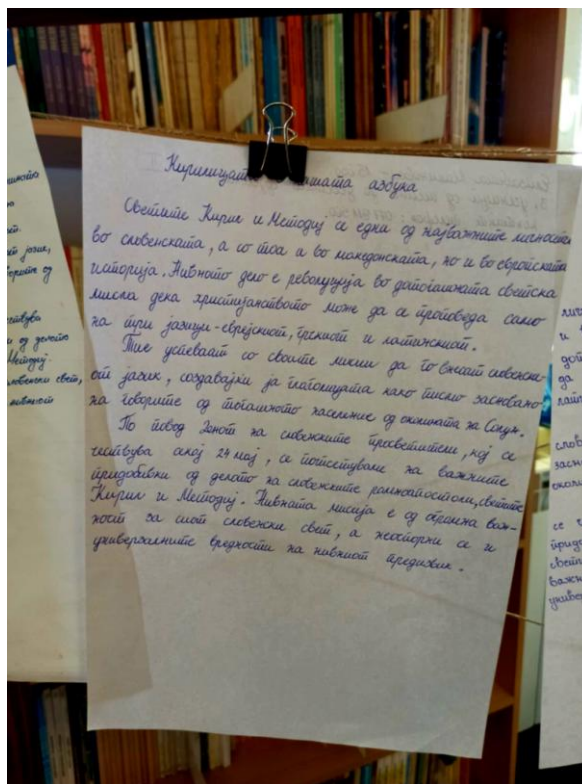 Кирилицата нашата азбука
Светите Кирил и Методиј се една од најважните личности
во словенската, а со тоа а во македонската, но и во европската
историја. Нивното дело е револуција во дотогашната светска
мисла дека христијанството може да се проповеда само
на три јазици - еврејскиот, грчкиот и латинскиот.
Тие успеваат со своите мисии да го внесат словенски-
от јазик, создавајќи ја глаголицата како писмо засновано
на говорите од тогашното население од околината на Солун.
По повод Денот на словенските просветители, кој се
чествува секој 24 мај, се потсетуваме на важните
придобивки од делото на словенските рамноапостоли, светите
Кирил и Методиј. Нивната мисија е од огромна важ-
ност за сиот словенски свет, а неоспорни се и
универзалните вредности на нивниот предизвик.
јазик,
од
чествува
и од делото
Методиј.
словенски свет,
нивниот